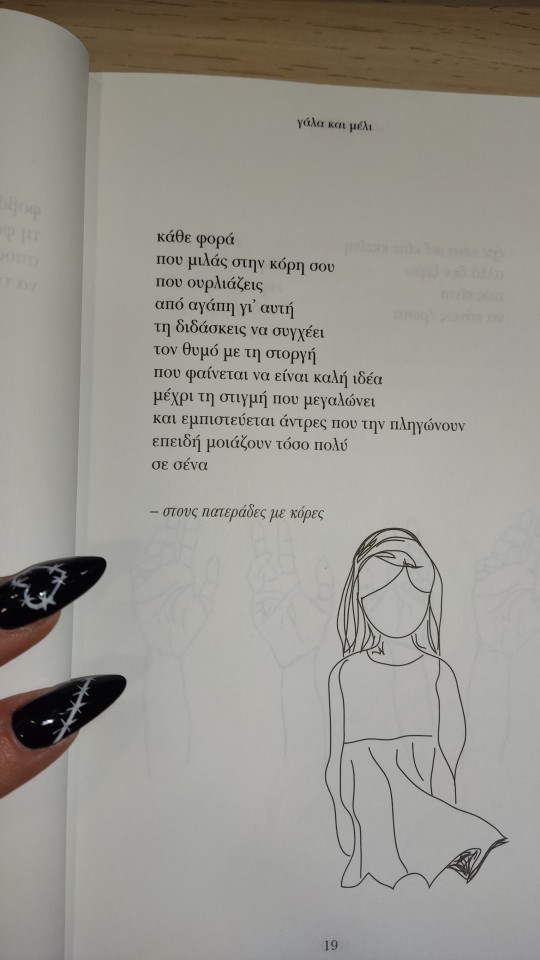 γάλα και μέλι
κάθε φορά
που μιλάς στην κόρη σου
που ουρλιάζεις
από αγάπη γι' αυτή
τη διδάσκεις να συγχέει
τον θυμό με τη στοργή
που φαίνεται να είναι καλή ιδέα
μέχρι τη στιγμή που μεγαλώνει
και εμπιστεύεται άντρες που την πληγώνουν
επειδή μοιάζουν τόσο πολύ
σε σένα
– στους πατεράδες με κόρες
19